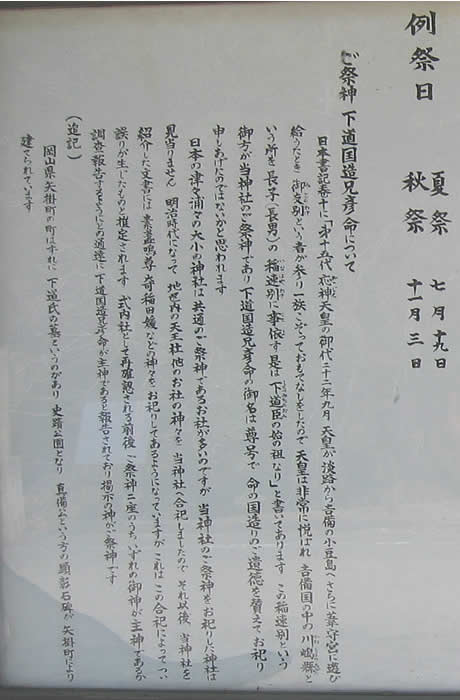 例祭日
夏祭 七月十九日
秋祭 十一月三日
ご祭神 下道国造兄彦命について
日本書記巻十に「第十五代応神天皇の御代二十二年九月 天皇が淡路から吉備の小豆島へさらに葦守宮に遊び
給うたとき 御友別という者が参り一族こぞっておもてなしをしたので 天皇は非常に悦ばれ 吉備国の中の川嶋縣と
いう所を 長子(長男)の稲速別に事依す 是は下道臣の始の祖なり」と書いてあります この稲速別という
御方が当神社のご祭神であり下道国造兄彦命の御名は尊号で 命の国造りのご遺徳を賛えてお祀り
申しあげたのではないかと思われます
日本の津々浦々の大小の神社は共通のご祭神であるお社が多いのですが 当神社のご祭神をお祀りした神社は
見当りません 明治時代になって 地域内の天王社他のお社の神々を 当神社へ合祀しましたので それ以後 当神社を
紹介した文書には 素盞嗚尊 奇稲田媛などの神々をお祀りしてあるようになっていますが これは この合祀によってつい
誤りが生じたものと推定されます 式内社として再確認される前後 ご祭神二座のうち いずれの御神が主神であるか
調査報告するようにとの通達に 下道国造兄彦命が主神であると報告されており 掲示の神がご祭神です
(追記)
岡山県矢掛町の町はずれに 下道氏の墓というのがあり 史蹟公園となり 真備公という方の顕彰石碑が矢掛町により
建てられています